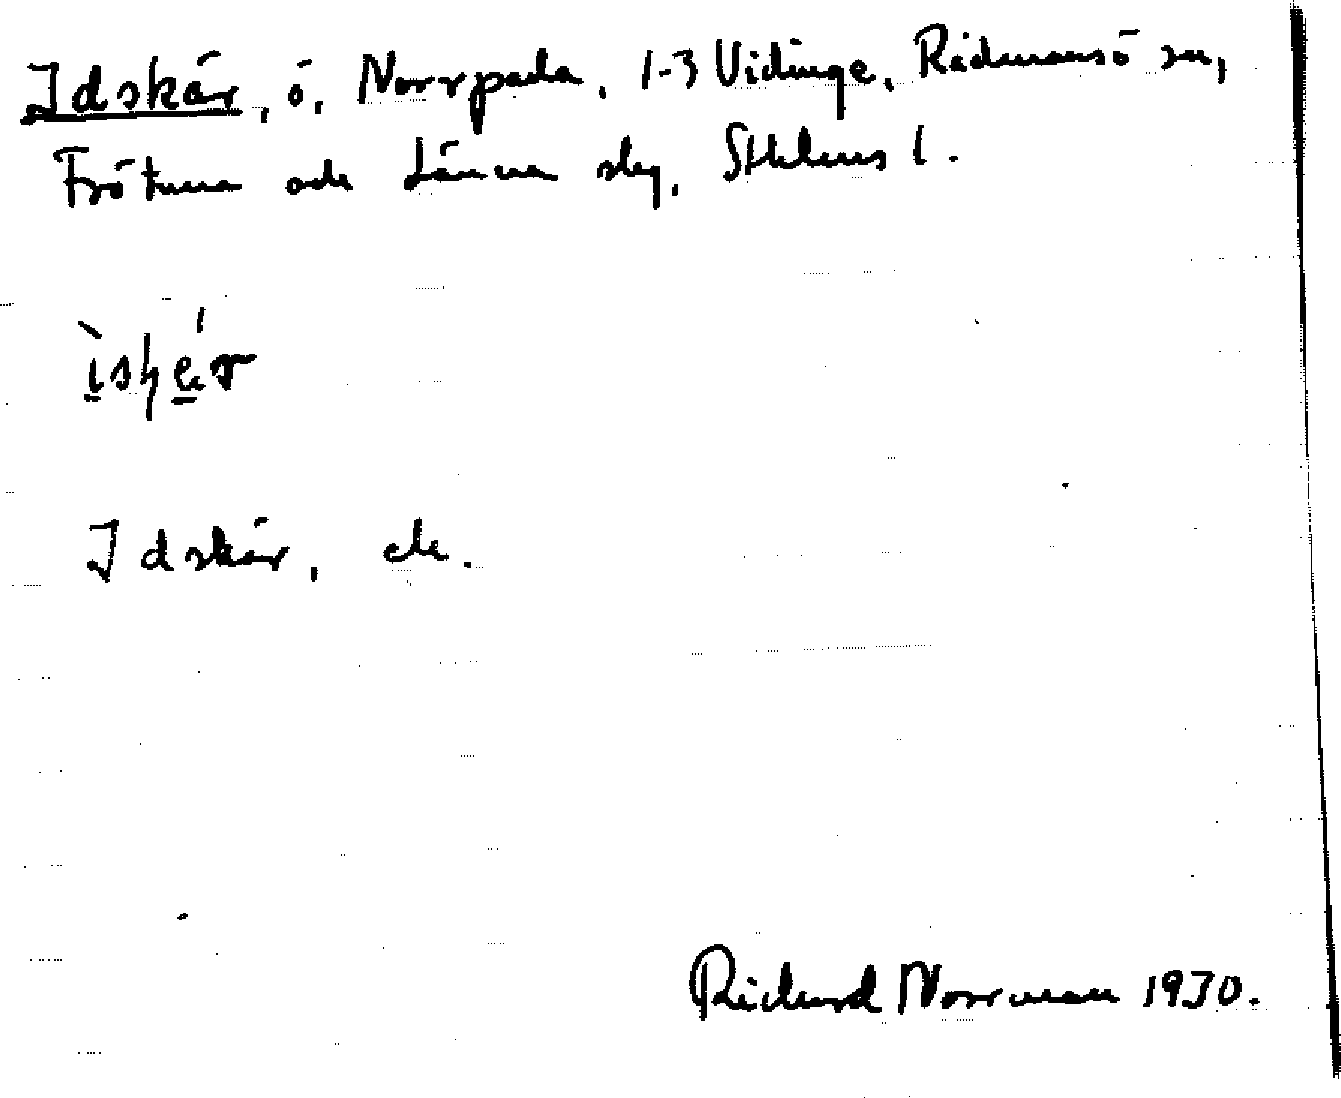 Idskär, ö, Norrpada, 1-3 Vidinge, Rådmansö sn,
Frötuna och Länna slg, Sthlms l.
ìsk̨é̱r
Idskär, ek.
Rickard Norrman 1930.